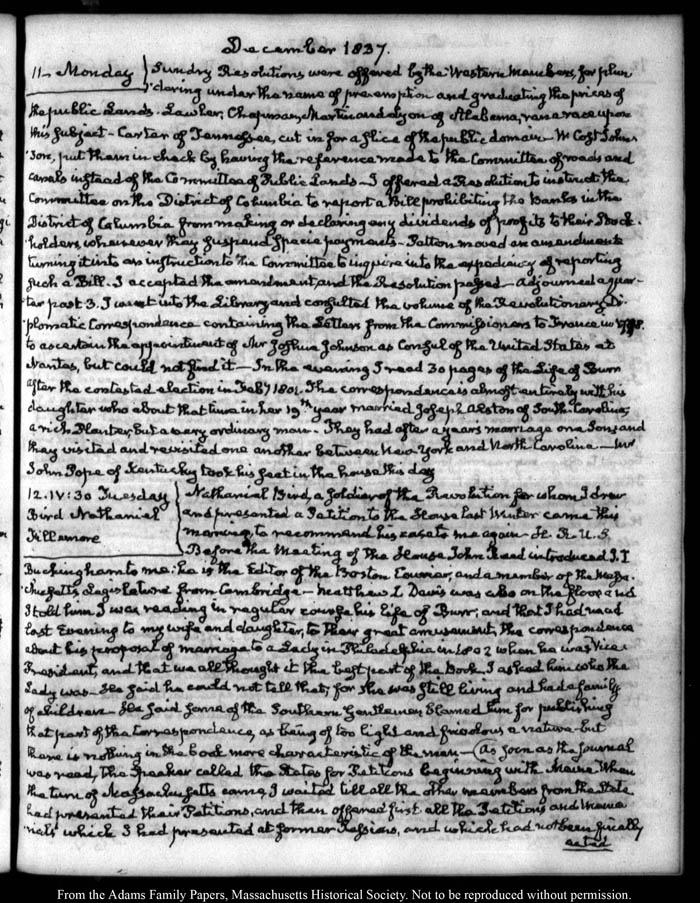 December 1837.
11. Monday Sundry Resolutions were offered by the Western Members, for plun
dering under the name of preemption and graduating the prices of
the public Lands. Lawler, Chapman, Martin and Lyon of Alabama, ran a race upon
this subject— Carter of Tennessee, cut in for a slice of the public domain— W. Cost John-
son, put them in check by having the reference made to the Committee of roads and
canals instead of the Committee of Public Lands— I offered a Resolution to instruct the
Committee on the District of Columbia to report a Bill prohibiting the Banks in the
District of Columbia from making or declaring any dividends of profits to their Stock-
holders, whenever they suspend specie payments— Patton moved an amendment
turning it into an instruction to the Committee to inquire into the expediency of reporting
such a Bill. I accepted the amendment, and the Resolution passed— adjourned a quar-
ter past 3. I went into the Library and consulted the volume of the Revolutionary Di-
plomatic Correspondence containing the Letters from the Commissioners to France in 1778.
to ascertain the appointment of Mr Joshua Johnson as Consul of the United States at
Nantes, but could not find it— In the evening I read 30 pages of the Life of Burr
after the contested election in Feby 1801. The correspondence is almost entirely with his
daughter who about that time in her 19th year married Joseph Alston of South-Carolina,
a rich Planter, but a very ordinary man. They had after a years marriage one Son; and
they visited and revisited one another between New York and North Carolina— Mr
John Pope of Kentucky took his seat in the house this day
12. IV:30 Tuesday Nathaniel Bird, a Soldier of the Revolution for whom I drew
Bird Nathaniel and presented a Petition to the House last Winter came this
Fillmore morning to recommend his case to me again— H. R. U. S.
Before the Meeting of the House John Reed introduced J. T
Buckingham to me: he is the Editor of the Boston Courier, and a member of the Massa-
chusetts Legislature from Cambridge— Matthew L Davis was also on the floor and
I told him I was reading in regular course his life of Burr; and that I had read
last Evening to my wife and daughter, to their great amusement, the correspondence
about his proposal of marriage to a Lady in Philadelphia in 1802 when he was Vice-
President, and that we all thought it the best part of the Book. I asked him who the
Lady was— He said he could not tell that; for she was still living and had a family
of children— He said some of the Southern Gentlemen blamed him for publishing
that part of the correspondence, as being of too light and frivolous a nature— but
there is nothing in the book more characteristic of the man— (As soon as the Journal
was read, the Speaker called the States for Petitions beginning with Maine. When
the turn of Massachusetts came, I waited till all the other members from the State
had presented their Petitions, and then offered first all the Petitions and Memo-
rials which I had presented at former Sessions, and which had not been finally
acted
From the Adams Family Papers, Massachusetts Historical Society. Not to be reproduced without permission.